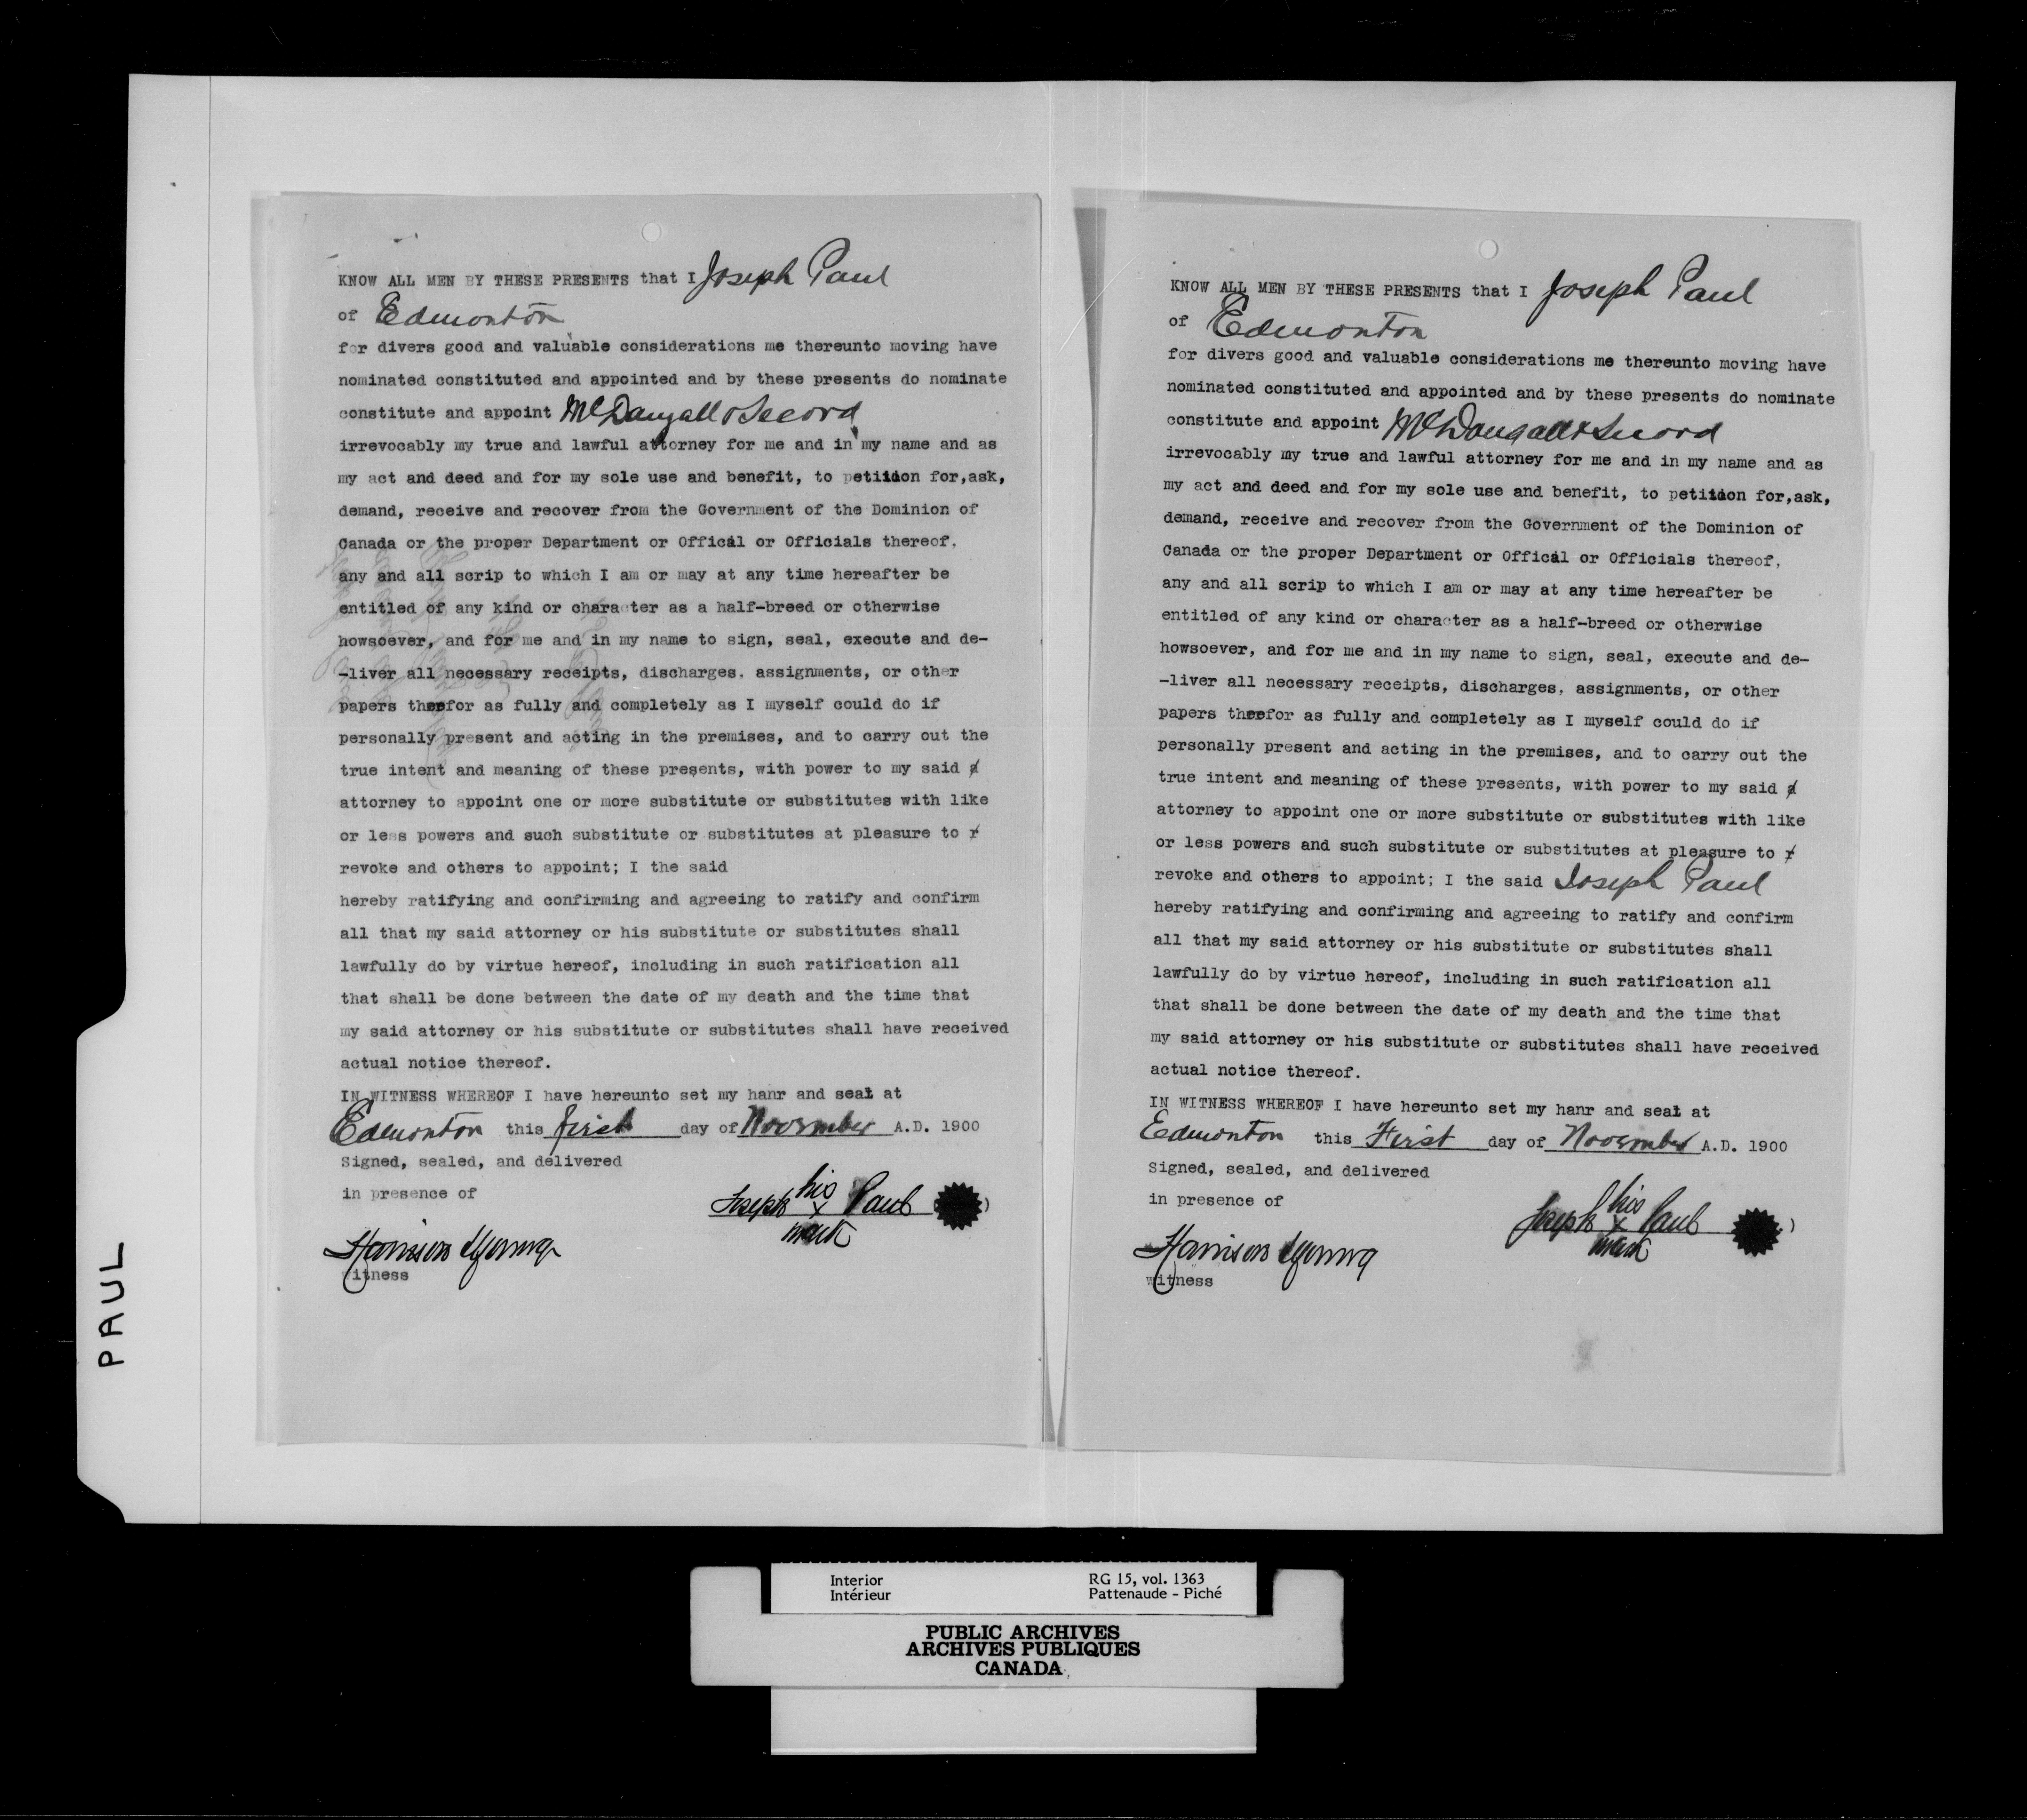 KNOW ALL MEN BY THESE PRESENTS that I Joseph Paul
of Edmonton
for divers good and valuable considerations me thereunto moving have
nominated constituted and appointed and by these presents do nominate
constitute and appoint McDougall & Secord
irrevocably my true and lawful attorney for me and in my name and as
my act and deed and for my sole use and benefit, to petition for,ask,
demand, receive and recover from the Government of the Dominion of
Canada or the proper Department or Offical or Officials thereof,
any and all scrip to which I am or may at any time hereafter be
entitled of any kind or character as a half-breed or otherwise
howsoever, and for me and in my name to sign, seal, execute and de-
-liver all necessary receipts, discharges, assignments, or other
papers therefor as fully and completely as I myself could do if
personally present and acting in the premises, and to carry out the
true intent and meaning of these presents, with power to my said a
attorney to appoint one or more substitute or substitutes with like
or less powers and such substitute or substitutes at pleasure to r
revoke and others to appoint; I the said
hereby ratifying and confirming and agreeing to ratify and confirm
all that my said attorney or his substitute or substitutes shall
lawfully do by virtue hereof, including in such ratification all
that shall be done between the date of my death and the time that
my said attorney or his substitute or substitutes shall have received
actual notice thereof.
IN WITNESS WHEREOF I have hereunto set my hanr and seal at
Edmonton this first day of November A.D. 1900
Signed, sealed, and delivered
in presence of
Joseph his x mark Paul
Harrison Young
witness
KNOW ALL MEN BY THESE PRESENTS that I Joseph Paul
of Edmonton
for divers good and valuable considerations me thereunto moving have
nominated constituted and appointed and by these presents do nominate
constitute and appoint McDougall & Secord
irrevocably my true and lawful attorney for me and in my name and as
my act and deed and for my sole use and benefit, to petition for,ask,
demand, receive and recover from the Government of the Dominion of
Canada or the proper Department or Offical or Officials thereof,
any and all scrip to which I am or may at any time hereafter be
entitled of any kind or character as a half-breed or otherwise
howsoever, and for me and in my name to sign, seal, execute and de-
-liver all necessary receipts, discharges, assignments, or other
papers therefor as fully and completely as I myself could do if
personally present and acting in the premises, and to carry out the
true intent and meaning of these presents, with power to my said a
attorney to appoint one or more substitute or substitutes with like
or less powers and such substitute or substitutes at pleasure to r
revoke and others to appoint; I the said Joseph Paul
hereby ratifying and confirming and agreeing to ratify and confirm
all that my said attorney or his substitute or substitutes shall
lawfully do by virtue hereof, including in such ratification all
that shall be done between the date of my death and the time that
my said attorney or his substitute or substitutes shall have received
actual notice thereof.
IN WITNESS WHEREOF I have hereunto set my hanr and seal at
Edmonton this First day of November A.D. 1900
Signed, sealed, and delivered
in presence of
Joseph his x mark Paul
Harrison Young
witness
PAUL
Interior RG 15, vol. 1363
Intérieur Pattenaude - Piché
PUBLIC ARCHIVES
ARCHIVES PUBLIQUES
CANADA